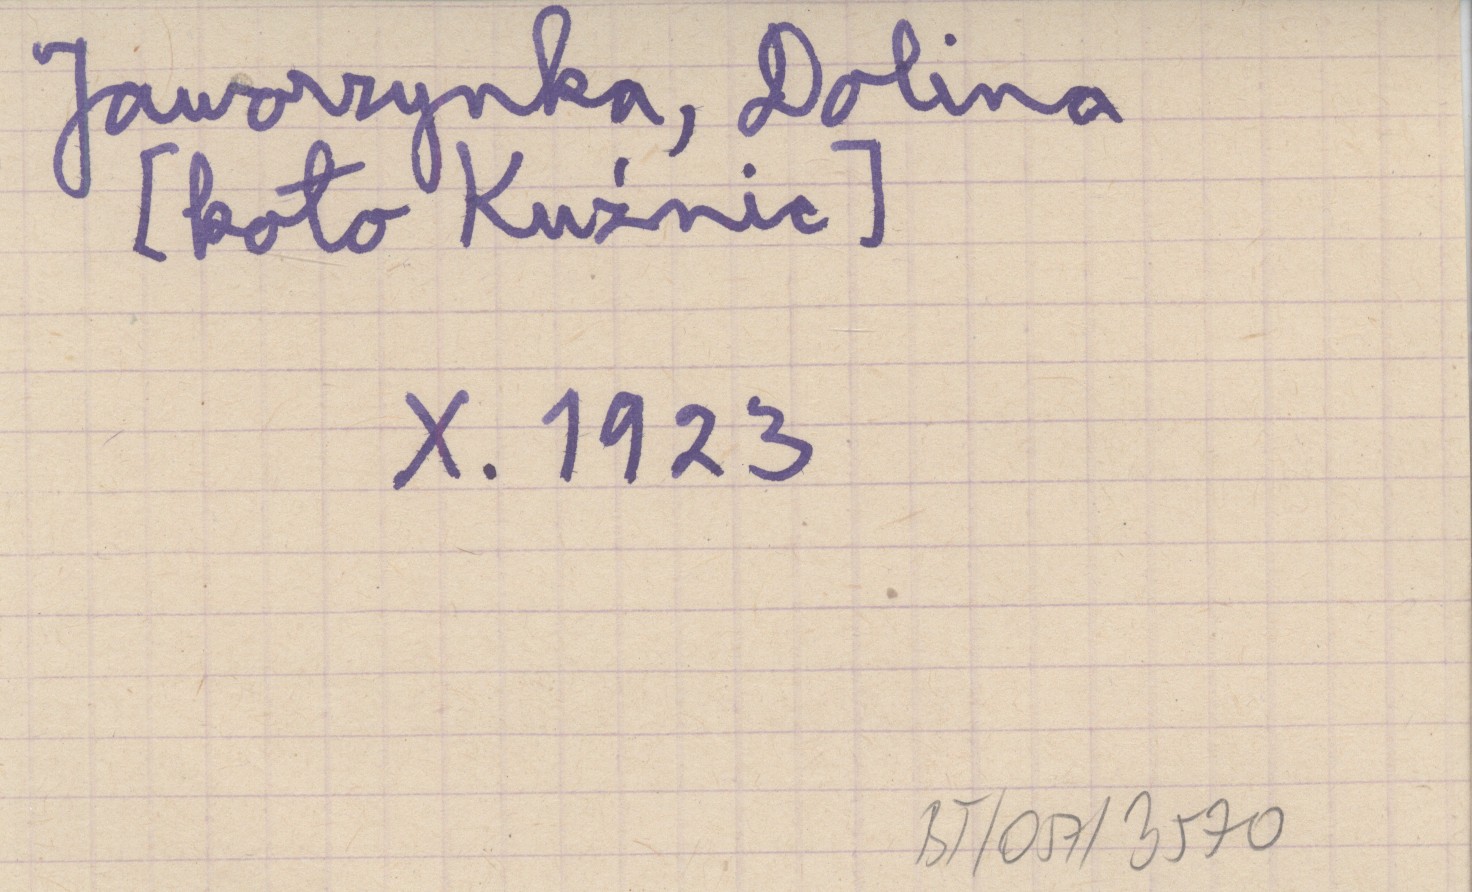 Jaworzynka, Dolina
[koło Kuźnic]
X. 1923
BT/057/3570